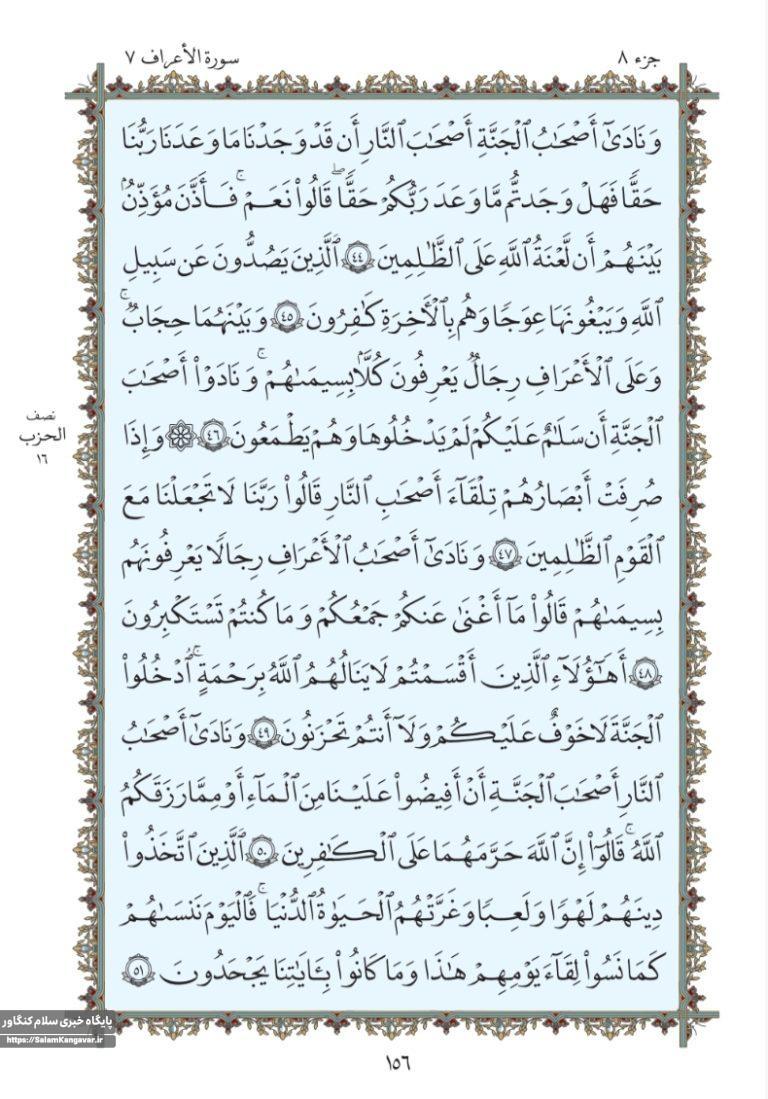 جزء ٨
سورة الأعراف ٧
وَنَادَىٰٓ أَصْحَٰبُ ٱلْجَنَّةِ أَصْحَٰبَ ٱلنَّارِ أَن قَدْ وَجَدْنَا مَا وَعَدَنَا رَبُّنَا
حَقًّا فَهَلْ وَجَدتُّم مَّا وَعَدَ رَبُّكُمْ حَقًّا ۖ قَالُوا۟ نَعَمْ ۚ فَأَذَّنَ مُؤَذِّنٌۢ
بَيْنَهُمْ أَن لَّعْنَةُ ٱللَّهِ عَلَى ٱلظَّٰلِمِينَ ٤٤ ٱلَّذِينَ يَصُدُّونَ عَن سَبِيلِ
ٱللَّهِ وَيَبْغُونَهَا عِوَجًا وَهُم بِٱلْأَخِرَةِ كَٰفِرُونَ ٤٥ وَبَيْنَهُمَا حِجَابٌ ۚ
وَعَلَى ٱلْأَعْرَافِ رِجَالٌ يَعْرِفُونَ كُلًّۢا بِسِيمَىٰهُمْ ۚ وَنَادَوْا۟ أَصْحَٰبَ
ٱلْجَنَّةِ أَن سَلَٰمٌ عَلَيْكُمْ لَمْ يَدْخُلُوهَا وَهُمْ يَطْمَعُونَ ٤٦ ۞ وَإِذَا
نصف
الحزب
١٦
صُرِفَتْ أَبْصَٰرُهُمْ تِلْقَآءَ أَصْحَٰبِ ٱلنَّارِ قَالُوا۟ رَبَّنَا لَا تَجْعَلْنَا مَعَ
ٱلْقَوْمِ ٱلظَّٰلِمِينَ ٤٧ وَنَادَىٰٓ أَصْحَٰبُ ٱلْأَعْرَافِ رِجَالًا يَعْرِفُونَهُم
بِسِيمَىٰهُمْ قَالُوا۟ مَآ أَغْنَىٰ عَنكُمْ جَمْعُكُمْ وَمَا كُنتُمْ تَسْتَكْبِرُونَ
٤٨ أَهَٰٓؤُلَآءِ ٱلَّذِينَ أَقْسَمْتُمْ لَا يَنَالُهُمُ ٱللَّهُ بِرَحْمَةٍ ۚ ٱدْخُلُوا۟
ٱلْجَنَّةَ لَا خَوْفٌ عَلَيْكُمْ وَلَآ أَنتُمْ تَحْزَنُونَ ٤٩ وَنَادَىٰٓ أَصْحَٰبُ
ٱلنَّارِ أَصْحَٰبَ ٱلْجَنَّةِ أَنْ أَفِيضُوا۟ عَلَيْنَا مِنَ ٱلْمَآءِ أَوْ مِمَّا رَزَقَكُمُ
ٱللَّهُ ۚ قَالُوٓا۟ إِنَّ ٱللَّهَ حَرَّمَهُمَا عَلَى ٱلْكَٰفِرِينَ ٥٠ ٱلَّذِينَ ٱتَّخَذُوا۟
دِينَهُمْ لَهْوًا وَلَعِبًا وَغَرَّتْهُمُ ٱلْحَيَوٰةُ ٱلدُّنْيَا ۚ فَٱلْيَوْمَ نَنسَىٰهُمْ
كَمَا نَسُوا۟ لِقَآءَ يَوْمِهِمْ هَٰذَا وَمَا كَانُوا۟ بِـَٔايَٰتِنَا يَجْحَدُونَ ٥١
پایگاه خبری سلام کنگاور
https://SalamKangavar.ir
١٥٦